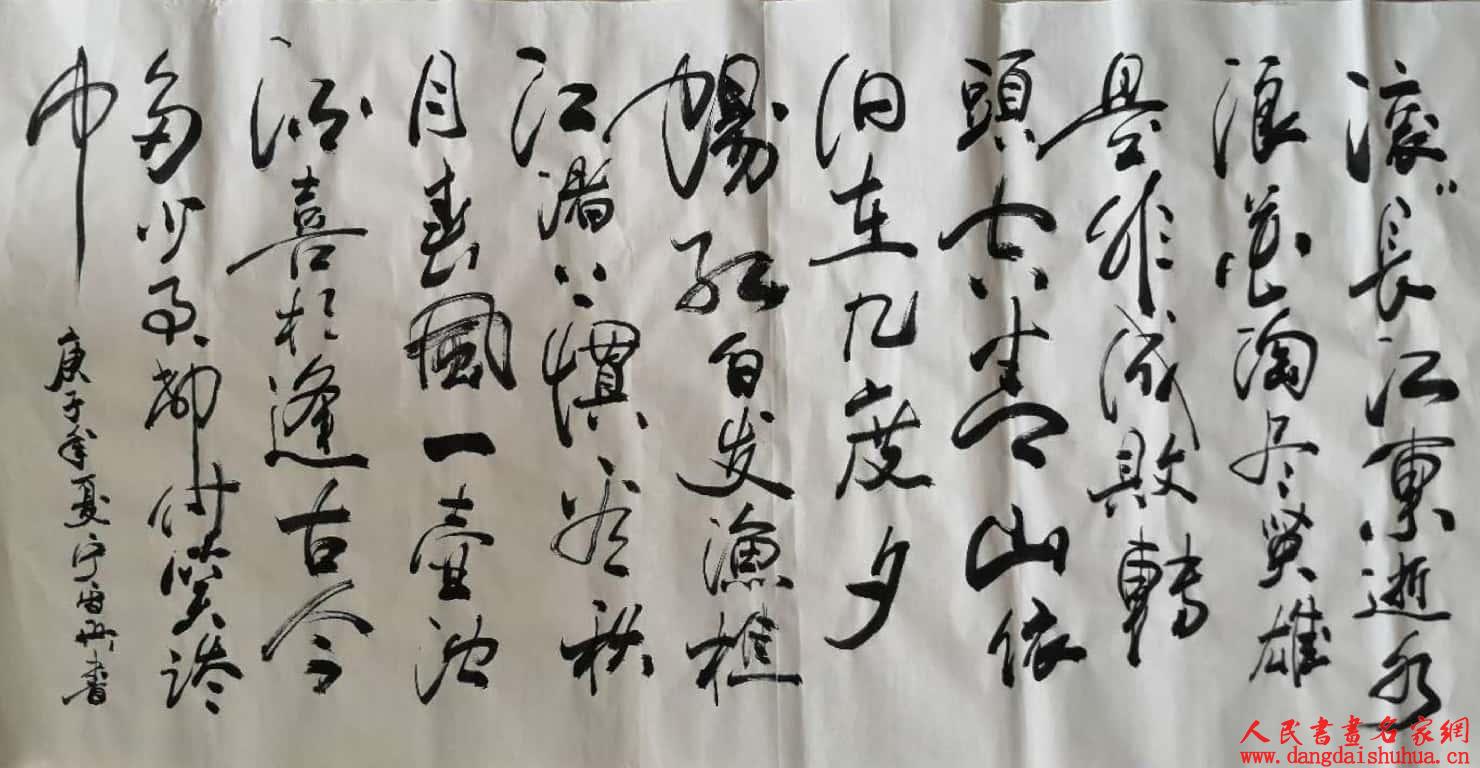 滚〃長江東逝水
浪花淘尽英雄
是非成敗轉
頭空青山依
旧在几度夕
陽红白发漁樵
江渚上慣看秋
月春風一壶浊
酒喜相逢古今
多少事都付笑談
中
庚子年夏宁書
人民書畫名家網
www.dangdaishuhua.cn